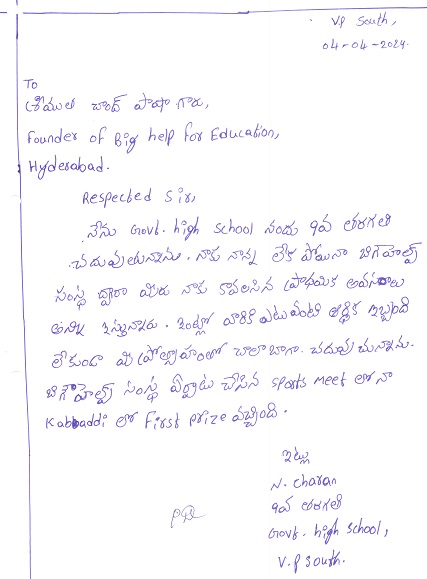 V.P South,
04-04-2024.
To
శ్రీయుత చాంద్ పాషా గారు,
Founder of Big help for Education,
Hyderabad.
Respected Sir,
నేను Govt. high School నందు 9వ తరగతి
చదువుతున్నాను. నాకు నాన్న లేక పోయినా బిగ్‌హెల్ప్
సంస్థ ద్వారా మీరు నాకు కావలసిన ప్రాథమిక అవసరాలు
అన్ని ఇస్తున్నారు. ఇంట్లో వారికి ఎటువంటి ఆర్థిక ఇబ్బంది
లేకుండా మీ ప్రోత్సాహంలో చాలా బాగా. చదువు చున్నాను.
బిగ్‌హెల్ప్ సంస్థ ఏర్పాటు చేసిన sports meet లో నా
Kabbaddi లో First prize వచ్చింది.
ఇట్లు
N. charan
9వ తరగతి
Govt. high School,
V.P South.